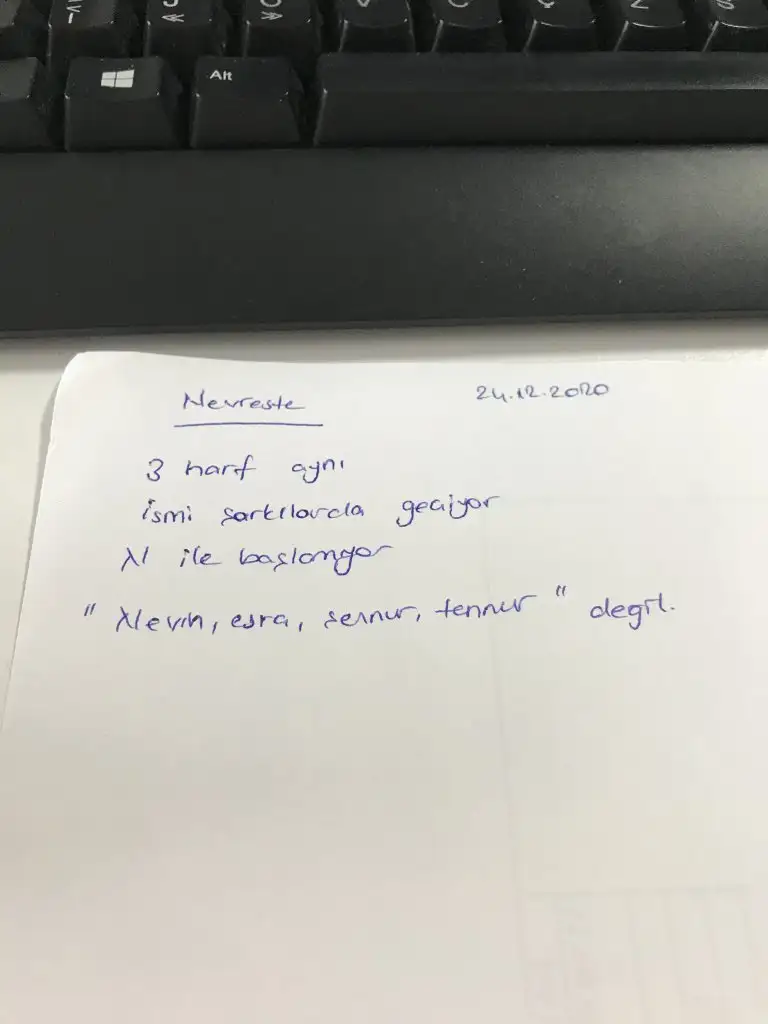 Alt
Nevreste 24.12.2020
3 harf aynı
ismi şarkılarda geçiyor
N ile başlamıyor
" Nevin, esra, sernur, tennur " değil.